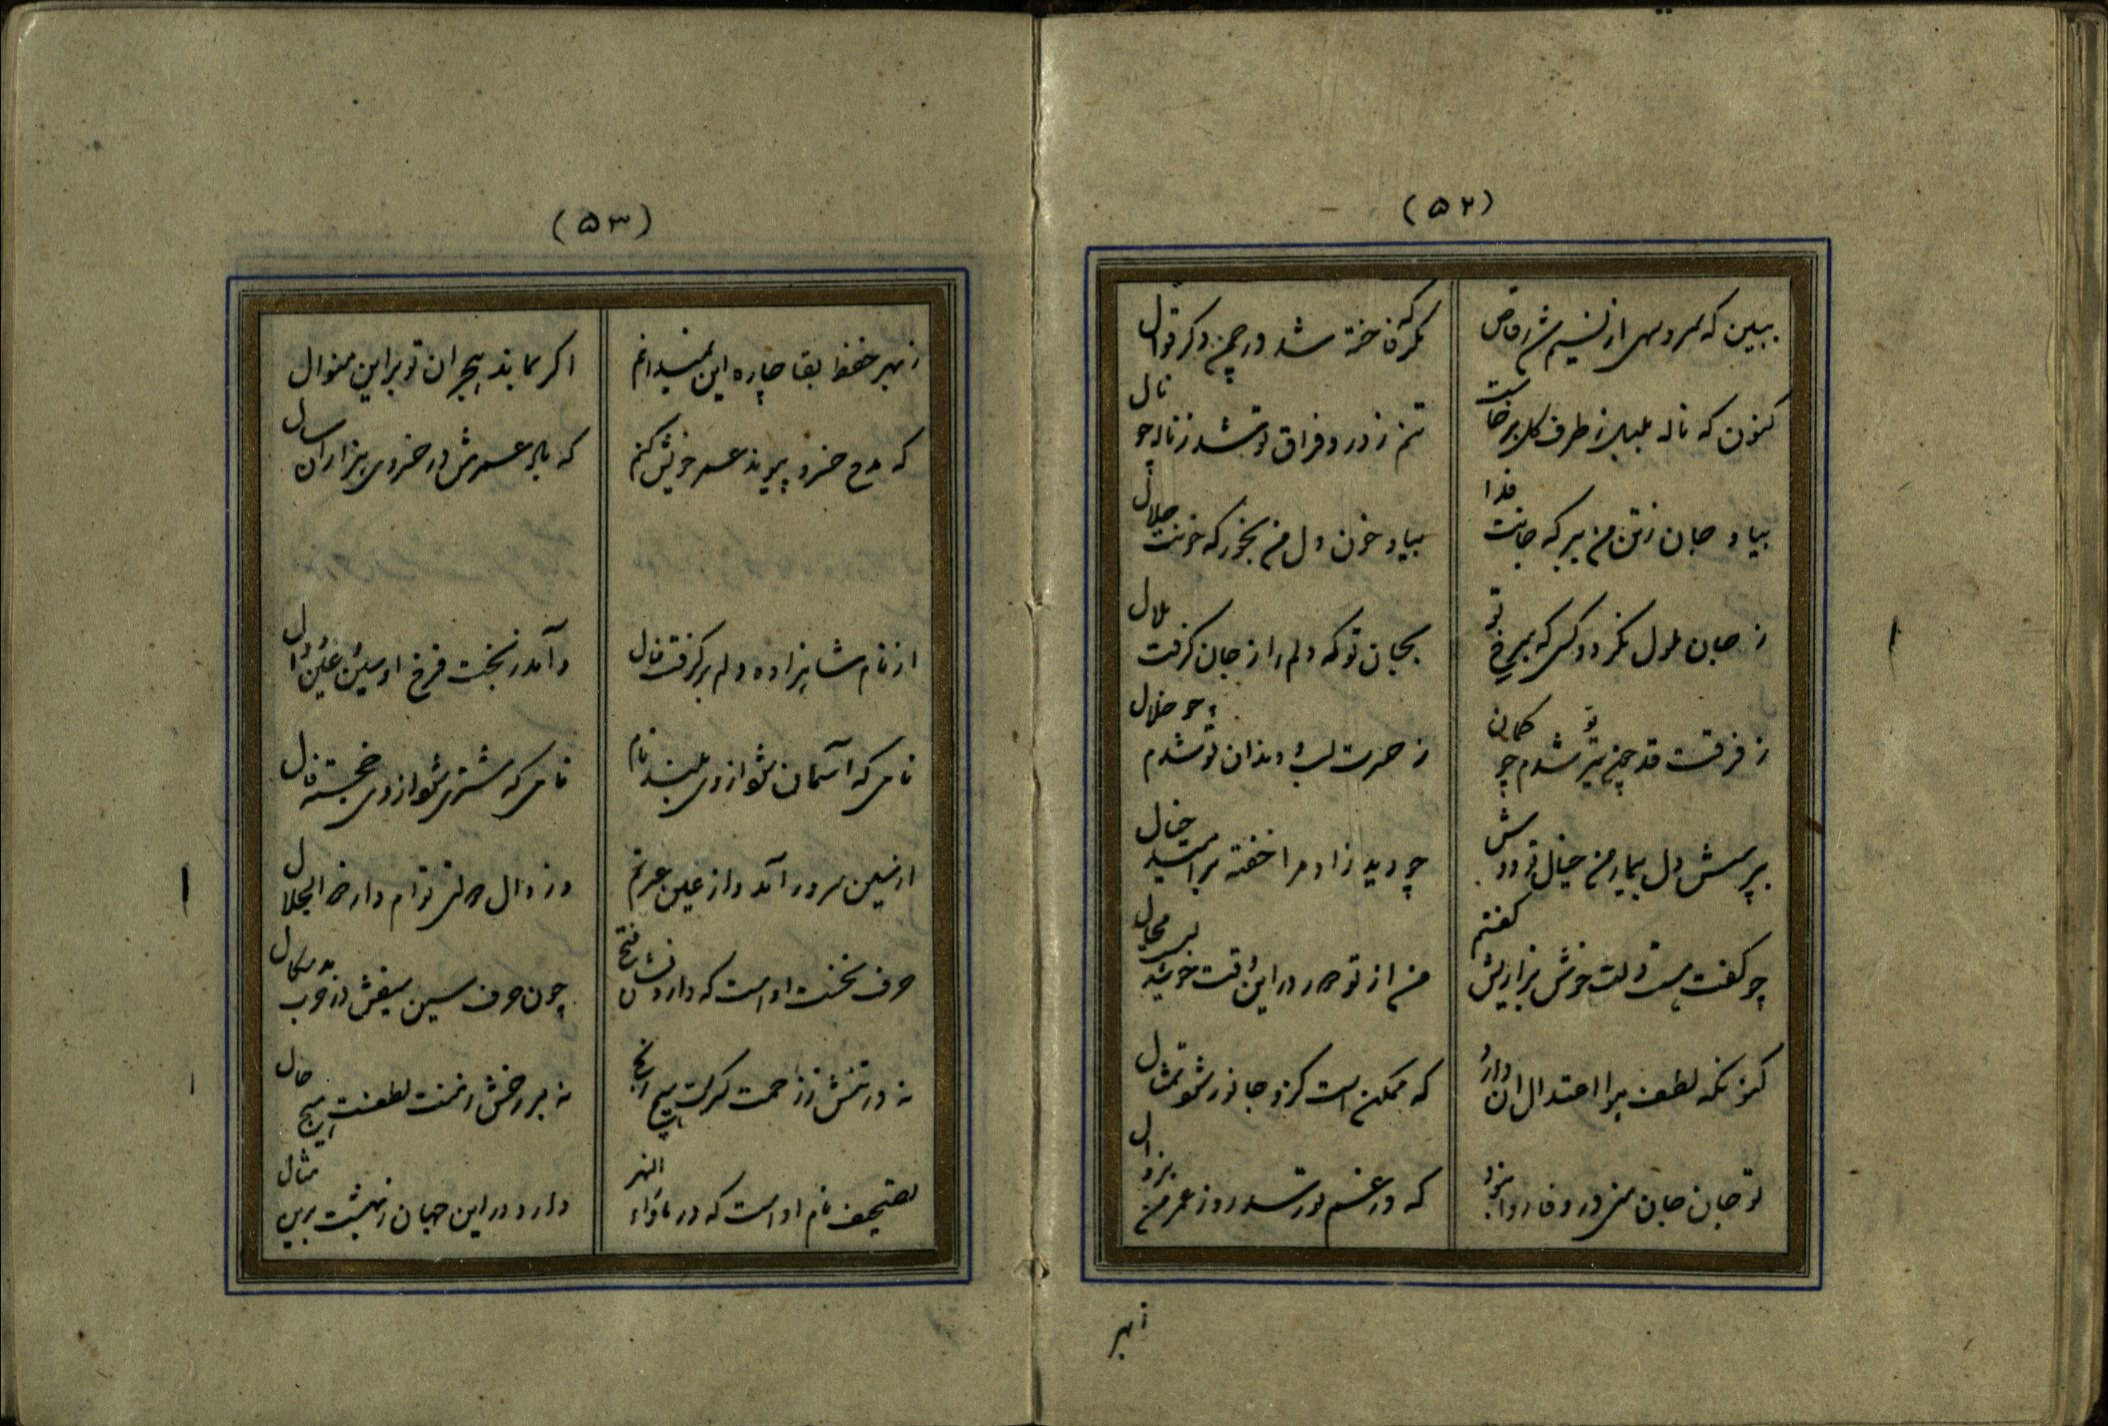 (۵۲)
ببین که سرو سهی از نسیم شد رقاص
نگر که فاخته شد در چمن دگر قوال
کنون که ناله بلبل ز طرف گل برخاست
تنم ز درد فراق تو شد ز ناله چو نال
بیا و جان ز تن من ببر که جانت فدا
بیا و خون دل من بخور که خونت حلال
ز جان ملول نگردد کسی که بی رخ تو
بجان تو که دلم را ز جان گرفت ملال
ز فرقت قد چون تیر تو شدم چو کمان
ز حسرت لب و دندان تو شدم چو خلال
بپرسش دل بیمار من خیال تو دوش
چو دید زاد مرا خفته بر امید خیال
چو گفت هست دلت خوش گفتم
من از تو دور در این وقت خوش محال
کنونکه لطف هوا اعتدال آن دارد
که ممکن است کزو جانور شود تمثال
تو جان جان منی در وفا روا نبود
که در غم تو رسد روز عمر من بزوال
زبهر
(۵۳)
زبهر حفظ بقا چاره این نمیدانم
اگر بماند هجران تو براین منوال
که مدح خسرو پیوند عمر خویش کنم
که باد عمرش در خسروی هزاران سال
از نام شاهزاده دلم برگرفت فال
و آمد ز بخت فرخ او سین و عین و دال
نامی که آسمان شود از وی بلند نام
نامی که مشتری شود از وی خجسته فال
از سین سرور آمد و از عین عز نم
وز دال دولتی توام دار ذو الجلال
حرف نخست اوست که دارد نشان فتح
چون حرف سین سیفش در حرب بدسگال
نه در تنش ز زحمت گرمست هیچ رنج
نه بر رخش ز منت لطفست هیچ خال
تصحیف نام اوست که در ماوراء النهر
دارد در این جهان ز بهشت برین مثال